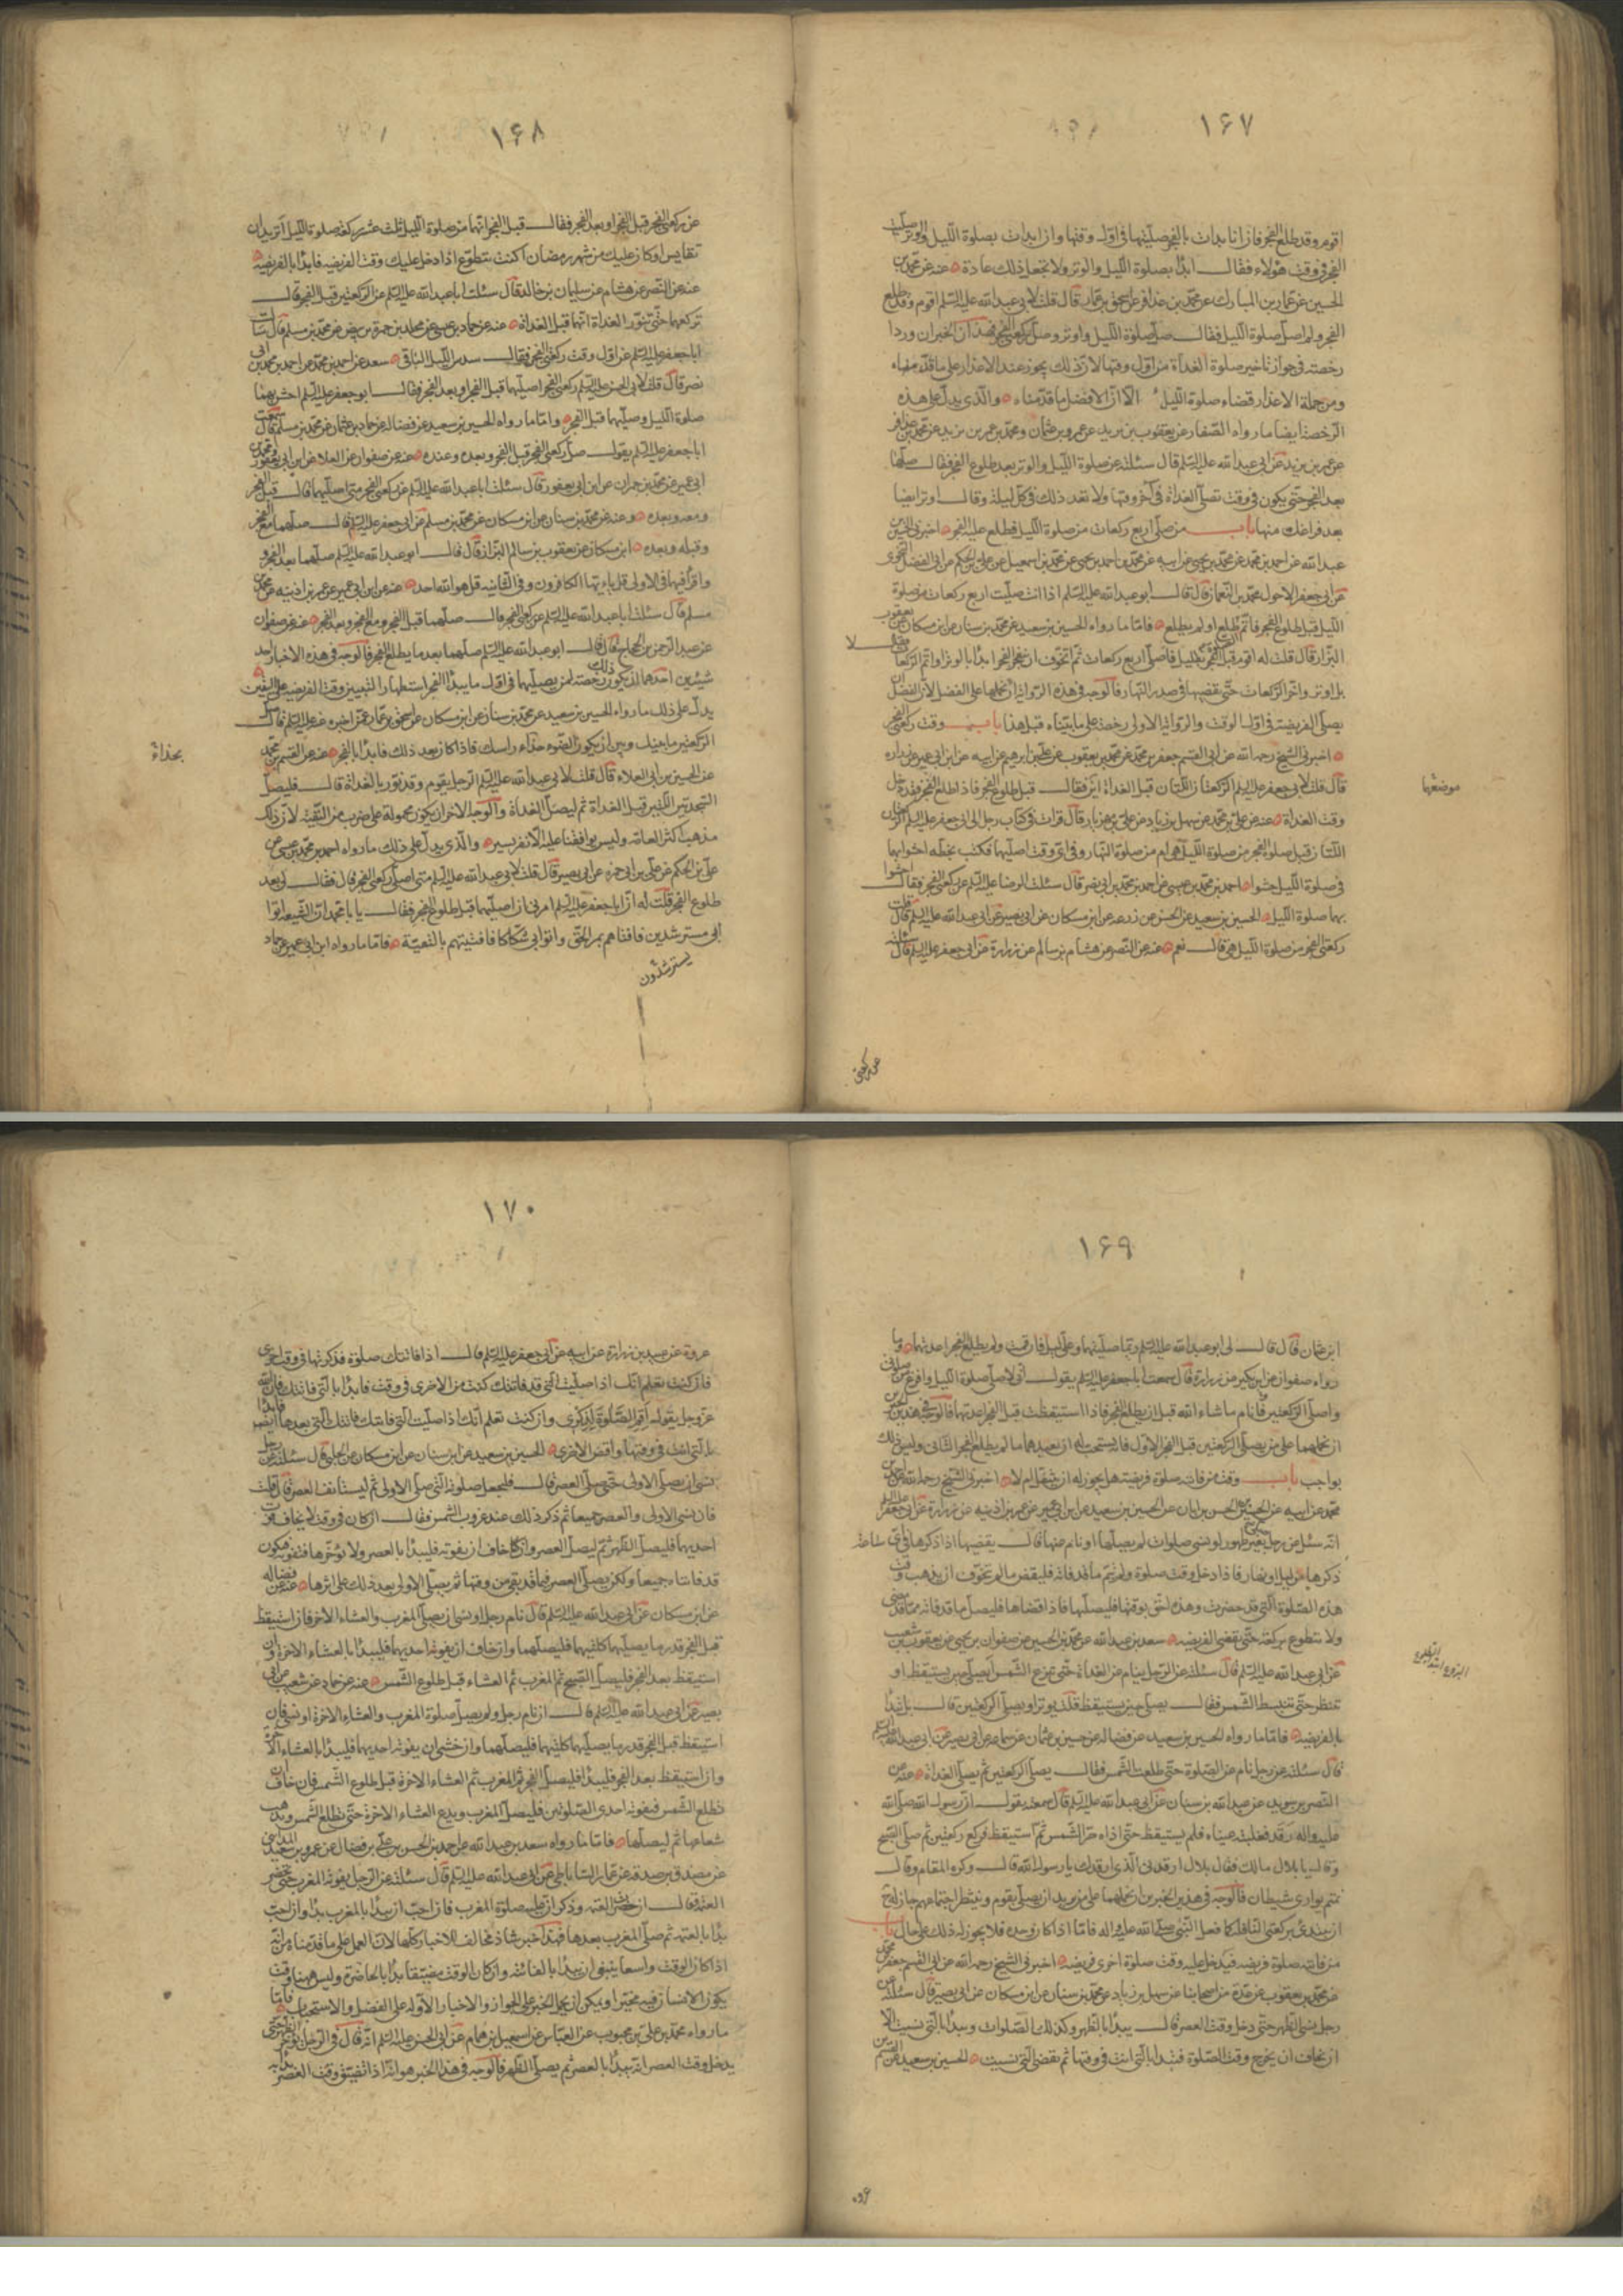 ١۶٧
اقوم وقد طلع الفجر فان انا بدات بالفجر صليتها فى اول وقتها وان بدات بصلوة الليل والوتر صليت
الفجر فى وقت هؤلاء فقال ابدأ بصلوة الليل والوتر ولا تجعل ذلك عادة عنه عن محمد بن
الحسين عن عمار بن المبارك عن محمد بن عذافر عن اسحق بن عمار قال قلت لابى عبدالله عليه السلم اقوم وقد طلع
الفجر ولم اصل صلوة الليل فقال صل صلوة الليل واوتر وصل ركعتى الفجر فهذان الخبران وردا
رخصة فى جواز تاخير صلوة الغداة من اول وقتها لان ذلك يجوز عند الاعذار على ما قدمناه
ومن جملة الاعذار قضاء صلوة الليل الا ان الافضل ما قدمناه والذى يدل على هذه
الرخصة ايضا ما رواه الصفار عن يعقوب بن يزيد عن عمرو بن عثمان ومحمد بن عمر بن يزيد عن محمد بن عذافر
عن عمر بن يزيد عن ابى عبدالله عليه السلم قال سئلته عن صلوة الليل والوتر بعد طلوع الفجر فقال صلها
بعد الفجر حتى يكون فى وقت تصلى الغداة فى آخر وقتها ولا تعمد ذلك فى كل ليلة وقال اوتر ايضا
بعد فراغك منها باب من صلى اربع ركعات من صلوة الليل فطلع عليه الفجر اخبرنى الحسين بن
عبدالله عن احمد بن محمد عن محمد بن يحيى عن ابيه عن محمد بن احمد بن يحيى عن محمد بن اسمعيل عن على بن الحكم عن ابى الفضل النحوى
عن ابى جعفر الاحول محمد بن النعمان قال قال ابو عبدالله عليه السلم اذا انت صليت اربع ركعات من صلوة
الليل قبل طلوع الفجر فاتم طلع او لم يطلع فاما ما رواه الحسين بن سعيد عن محمد بن سنان عن ابن مسكان عن يعقوب
البزاز قال قلت له اقوم قبل الفجر بقليل فاصلى اربع ركعات ثم اتخوف ان ينفجر الفجر ابدأ بالوتر او اتم الركعات فقال لا
بل اوتر واخر الركعات حتى تقضيها فى صدر النهار فالوجه فى هذه الرواية ان نحملها على الفضل لان الفضل ان
يصلى الفريضة فى اول الوقت والرواية الاولى رخصة على ما بيناه قبل هذا باب وقت ركعتى الفجر
اخبرنى الشيخ رحمه الله عن ابى القسم جعفر بن محمد عن محمد بن يعقوب عن على بن ابرهيم عن ابيه عن ابن ابى عمير عن زراره
قال قلت لابى جعفر عليه السلم الركعتان اللتان قبل الغداة اين موضعهما فقال قبل طلوع الفجر فاذا طلع الفجر فقد دخل
وقت الغداة عنه عن على بن محمد عن سهل بن زياد عن على بن مهزيار قال قرات فى كتاب رجل الى ابى جعفر عليه السلم الركعتان
اللتان قبل صلوة الفجر من صلوة الليل هى ام من صلوة النهار وفى اى وقت اصليها فكتب بخطه احشوا بهما
فى صلوة الليل حشوا احمد بن محمد بن عيسى عن احمد بن محمد بن ابى نصر قال سئلت الرضا عليه السلم عن ركعتى الفجر فقال احشوا
بهما صلوة الليل الحسين بن سعيد عن الحسن عن زرعه عن ابن مسكان عن ابى بصير عن ابى عبدالله عليه السلم قال قلت
ركعتى الفجر من صلوة الليل هى قال نعم عنه عن النضر عن هشام بن سالم عن زرارة عن ابى جعفر عليه السلم قال سئلته
عن ركعتى
١۶٨
عن ركعتى الفجر قبل الفجر او بعد الفجر فقال قبل الفجر انهما من صلوة الليل ثلث عشر ركعة صلوة الليل اتريد ان
تقايس لو كان عليك من شهر رمضان اكنت تتطوع اذا دخل عليك وقت الفريضة فابدأ بالفريضة
عنه عن النضر عن هشام عن سليمان بن خالد قال سئلت ابا عبدالله عليه السلم عن الركعتين قبل الفجر قال
تركعهما حتى تنور الغداة انهما قبل الغداة عنه عن حماد بن عيسى عن محمد بن حمزة بن بيض عن محمد بن مسلم قال سألت
ابا جعفر عليه السلم عن اول وقت ركعتى الفجر فقال سدس الليل الباقى سعد عن احمد بن محمد عن احمد بن محمد بن ابى
نصر قال قلت لابى الحسن عليه السلم ركعتى الفجر اصليهما قبل الفجر او بعد الفجر فقال ابو جعفر عليه السلم احش بهما
صلوة الليل وصلهما قبل الفجر واما ما رواه الحسين بن سعيد عن فضاله عن حماد بن عثمان عن محمد بن مسلم قال سمعت
ابا جعفر عليه السلم يقول صل ركعتى الفجر قبل الفجر وبعده وعنده عنه عن صفوان عن العلا عن ابن ابى يعفور ومحمد بن
ابى عمير عن محمد بن حمران عن ابن ابى يعفور قال سئلت ابا عبدالله عليه السلم عن ركعتى الفجر متى اصليهما قال قبل الفجر
ومعه وبعده وعنه عن محمد بن سنان عن ابن مسكان عن محمد بن مسلم عن ابى جعفر عليه السلم قال صلهما مع الفجر
وقبله وبعده ابن مسكان عن يعقوب بن سالم البزاز قال قال ابو عبدالله عليه السلم صلهما بعد الفجر و
واقرأ فيهما فى الاولى قل يا ايها الكافرون وفى الثانية قل هو الله احد عنه عن ابن ابى عمير عن عمر بن اذينه عن محمد بن
مسلم قال سئلت ابا عبدالله عليه السلم عن ركعتى الفجر قال صلهما قبل الفجر ومع الفجر وبعد الفجر عنه عن صفوان
عن عبد الرحمن بن الحجاج قال قال ابو عبدالله عليه السلم صلهما بعد ما يطلع الفجر فالوجه فى هذه الاخبار احد
شيئين احدهما ان يكون ذلك رخصة لمن يصليهما فى اول ما يبدأ الفجر استظهارا لتبيين وقت الفريضة على اليقين
يدل على ذلك ما رواه الحسين بن سعيد عن محمد بن سنان عن ابن مسكان عن اسحق بن عمار عمن اخبره عنه عليه السلم قال صل
الركعتين ما بينك وبين ان يكون الضوء حذاء راسك فاذا كان بعد ذلك فابدأ بالفجر عنه عن القسم بن محمد
بحذاء
عن الحسين بن ابى العلاء قال قلت لابى عبدالله عليه السلم الرجل يقوم وقد نور بالغداة قال فليصل
السجدتين اللتين قبل الغداة ثم ليصل الغداة والوجه الاخر ان يكون محمولة على ضرب من التقية لان ذلك
مذهب اكثر العامة وليس يوافقنا عليه الا نفر يسير والذى يدل على ذلك ما رواه احمد بن محمد بن عيسى عن
على بن الحكم عن على بن ابى حمزه عن ابى بصير قال قلت لابى عبدالله عليه السلم متى اصلى ركعتى الفجر قال فقال لى بعد
طلوع الفجر قلت له ان ابا جعفر عليه السلم امرنى ان اصليهما قبل طلوع الفجر فقال يا ابا محمد ان الشيعة اتوا
ابى مسترشدين فافتاهم بمر الحق واتونى شكاكا فافتيتهم بالتقية فاما ما رواه ابن ابى عمير عن حماد
يسترشدون
١۶٩
ابن عثمان قال قال لى ابو عبدالله عليه السلم ربما صليتهما وعلى ليل فان قمت ولم يطلع الفجر اعدتهما وما
رواه صفوان عن ابن بكير عن زرارة قال سمعت ابا جعفر عليه السلم يقول انى لاصلى صلوة الليل وافرغ من صلوتى
واصلى الركعتين فانام ما شاء الله قبل ان يطلع الفجر فاذا استيقظت قبل الفجر اعدتهما فالوجه فى هذين الخبرين
ان نحملهما على من يصلى الركعتين قبل الفجر الاول فانه يستحب له ان يعيدهما ما لم يطلع الفجر الثانى وليس ذلك
بواجب باب وقت من فاته صلوة فريضة هل يجوز له ان يتنفل ام لا اخبرنى الشيخ رحمه الله عن احمد بن
محمد عن ابيه عن الحسين بن الحسن بن ابان عن الحسين بن سعيد عن ابن ابى عمير عن عمر بن اذينه عن زرارة عن ابى جعفر عليه السلم
انه سئل عن رجل صلى بغير طهور او نسى صلوات لم يصلها او نام عنها قال يقضيها اذا ذكرها فى اى ساعة
ذكرها من ليل او نهار فاذا دخل وقت صلوة ولم يتم ما قد فاته فليقض ما لم يتخوف ان يذهب وقت
هذه الصلوة التى قد حضرت وهذه احق بوقتها فليصلها فاذا قضاها فليصل ما قد فاته مما قد مضى
ولا يتطوع بركعة حتى يقضى الفريضة سعد بن عبدالله عن محمد بن الحسين عن صفوان بن يحيى عن يعقوب بن شعيب
عن ابى عبدالله عليه السلم قال سئلته عن الرجل ينام عن الغداة حتى تبزغ الشمس ايصلى حين يستيقظ او
البزوغ ابتداء الطلوع
ينتظر حتى تنبسط الشمس فقال يصلى حين يستيقظ قلت يوتر او يصلى الركعتين قال بل يبدأ
بالفريضة فاما ما رواه الحسين بن سعيد عن فضاله عن حسين بن عثمان عن سماعه عن ابى بصير عن ابى عبدالله عليه السلم
قال سئلته عن رجل نام عن الصلوة حتى طلعت الشمس فقال يصلى الركعتين ثم يصلى الغداة عنه عن
النضر بن سويد عن عبدالله بن سنان عن ابى عبدالله عليه السلم قال سمعته يقول ان رسول الله صلى الله
عليه واله رقد فغلبته عيناه فلم يستيقظ حتى اذاه حر الشمس ثم استيقظ فركع ركعتين ثم صلى الصبح
وقال يا بلال مالك فقال بلال ارقدنى الذى ارقدك يا رسول الله قال وكره المقام وقال
نمتم بوادى شيطان فالوجه فى هذين الخبرين ان نحملهما على من يريد ان يصلى بقوم وينتظر اجتماعهم جاز له
ان يبتدئ بركعتى النافلة كما فعل النبى صلى الله عليه واله فاما اذا كان وحده فلا يجوز له ذلك على حال باب
من فاتته صلوة فريضه فيدخل عليه وقت صلوة اخرى فريضه اخبرنى الشيخ رحمه الله عن ابى القسم جعفر بن محمد
عن محمد بن يعقوب عن عدة من اصحابنا عن سهل بن زياد عن محمد بن سنان عن ابن مسكان عن ابى بصير قال سئلته عن
رجل نسى الظهر حتى دخل وقت العصر قال يبدأ بالظهر وكذلك الصلوات وتبدأ بالتى نسيت الا
ان تخاف ان يخرج وقت الصلوة فتبدأ بالتى انت فى وقتها ثم تقضى التى نسيت الحسين بن سعيد عن القسم بن
عروه
١٧٠
عروة عن عبيد بن زرارة عن ابيه عن ابى جعفر عليه السلم قال اذا فاتتك صلوة فذكرتها فى وقت اخرى
فان كنت تعلم انك اذا صليت التى قد فاتتك كنت من الاخرى فى وقت فابدأ بالتى فاتتك فان الله
عز وجل يقول اقم الصلوة لذكرى وان كنت تعلم انك اذا صليت التى فاتتك فاتتك التى بعدها فابدأ
بالتى انت فى وقتها واقض الاخرى الحسين بن سعيد عن ابن سنان عن ابن مسكان عن الحلبى قال سئلته عن رجل
نسى ان يصلى الاولى حتى صلى العصر قال فليجعل صلوته التى صلى الاولى ثم ليستأنف العصر قال قلت
فان نسى الاولى والعصر جميعا ثم ذكر ذلك عند غروب الشمس فقال ان كان فى وقت لا يخاف فوت
احديهما فليصل الظهر ثم ليصل العصر وان كان خاف ان يفوته فليبدأ بالعصر ولا يؤخرها فتفوته فيكون
قد فاتتاه جميعا ولكن يصلى العصر فيما قد بقى من وقتها ثم يصلى الاولى بعد ذلك على اثرها عنه عن فضاله
عن ابن مسكان عن ابى عبدالله عليه السلم قال ان نام رجل او نسى ان يصلى المغرب والعشاء الاخرة فان استيقظ
قبل الفجر قدر ما يصليهما كلتيهما فليصلهما وان خاف ان يفوته احديهما فليبدأ بالعشاء الاخرة وان
استيقظ بعد الفجر فليصل الصبح ثم المغرب ثم العشاء قبل طلوع الشمس عنه عن حماد عن شعيب عن ابى
بصير عن ابى عبدالله عليه السلم قال ان نام رجل ولم يصل صلوة المغرب والعشاء الاخرة او نسى فان
استيقظ قبل الفجر قدر ما يصليهما كلتيهما فليصلهما وان خشى ان يفوته احديهما فليبدأ بالعشاء الاخرة
وان استيقظ بعد الفجر فليبدأ فليصل الفجر ثم المغرب ثم العشاء الاخرة قبل طلوع الشمس فان خاف ان
تطلع الشمس فتفوته احدى الصلوتين فليصل المغرب ويدع العشاء الاخرة حتى تطلع الشمس ويذهب
شعاعها ثم ليصلها فاما ما رواه سعد بن عبدالله عن احمد بن الحسن بن على بن فضال عن عمرو بن سعيد المداينى
عن مصدق بن صدقه عن عمار الساباطى عن ابى عبدالله عليه السلم قال سئلته عن الرجل يفوته المغرب حتى يحضر
العتمة فقال ان حضر العتمة وذكر ان عليه صلوة المغرب فان احب ان يبدأ بالمغرب بدأ وان احب
بدأ بالعتمة ثم صلى المغرب بعدها فهذا خبر شاذ مخالف للاخبار كلها لان العمل على ما قدمناه من انه
اذا كان الوقت واسعا ينبغى ان يبدأ بالفائتة وان كان الوقت مضيقا بدأ بالحاضرة وليس هيهنا وقت
يكون الانسان فيه مخيرا ويمكن ان يحمل الخبر على الجواز والاخبار الاوله على الفضل والاستحباب فاما
ما رواه محمد بن على بن محبوب عن العباس عن اسمعيل بن همام عن ابى الحسن عليه السلم انه قال فى الرجل يؤخر الظهر حتى
يدخل وقت العصر انه يبدأ بالعصر ثم يصلى الظهر فالوجه فى هذا الخبر هو انه اذا تضيق وقت العصر بدأ به